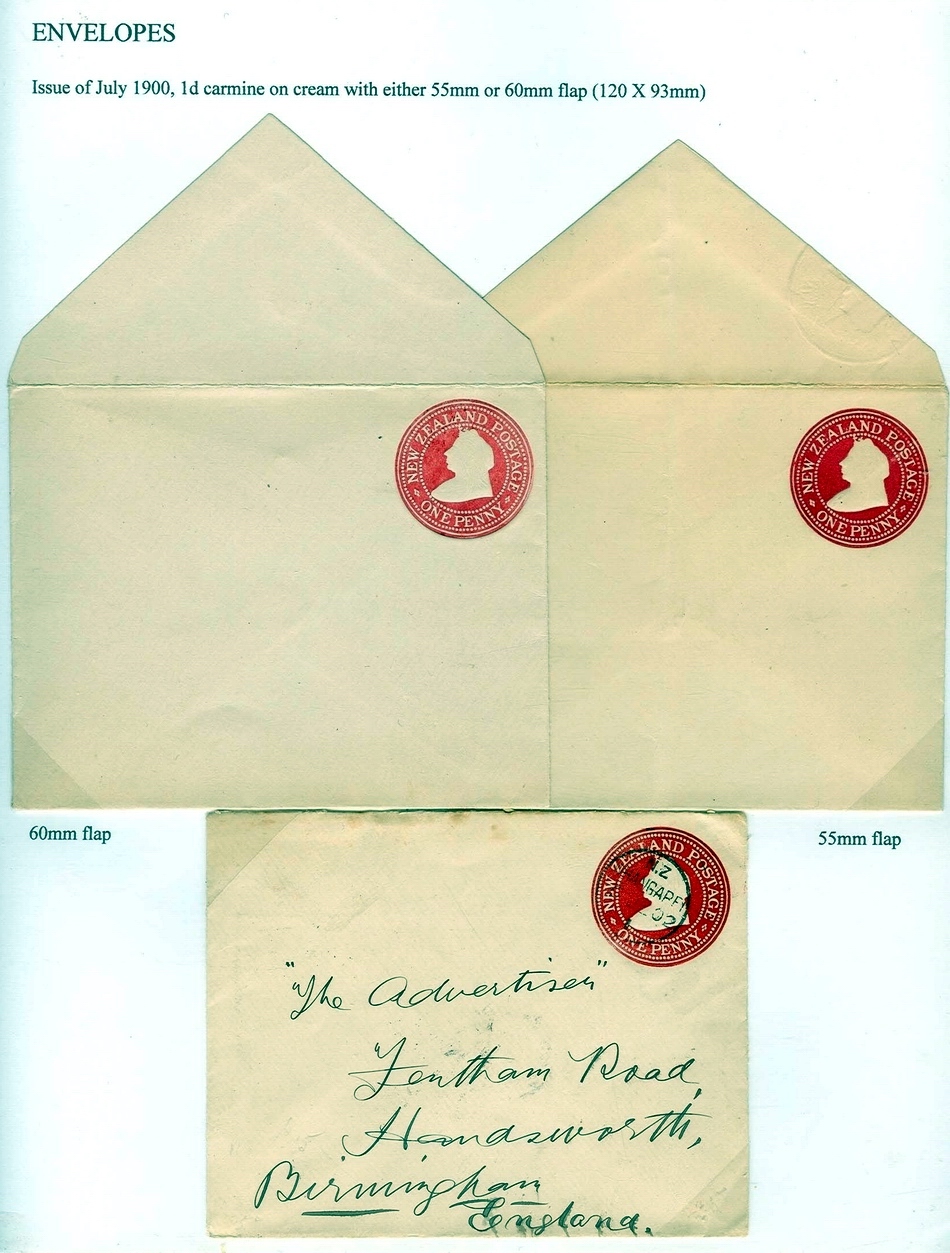 ENVELOPES
Issue of July 1900, 1d carmine on cream with either 55mm or 60mm flap (120 X 93mm)
NEW ZEALAND POSTAGE
ONE PENNY
NEW ZEALAND POSTAGE
ONE PENNY
60mm flap
55mm flap
NEW ZEALAND POSTAGE
ONE PENNY
N.Z
02
"The Advertiser"
Fentham Road,
Handsworth,
Birmingham
England.